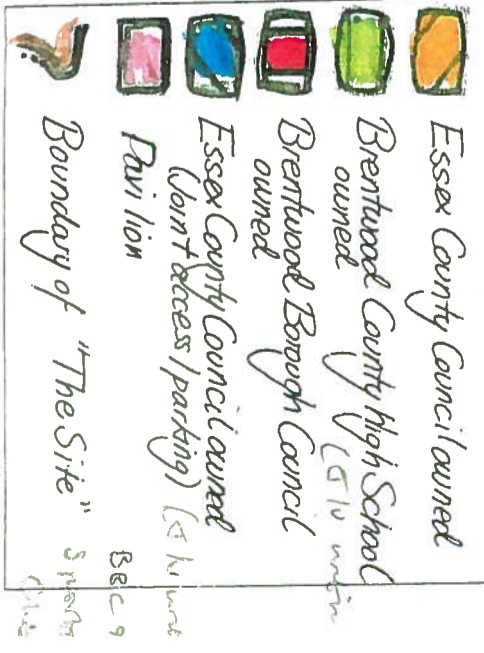 Essex County Council owned
Brentwood County high School
owned
Brentwood Borough Council
owned
Essex County Council owned
(Joint access/parking)
Pavilion
Boundary of "The Site"